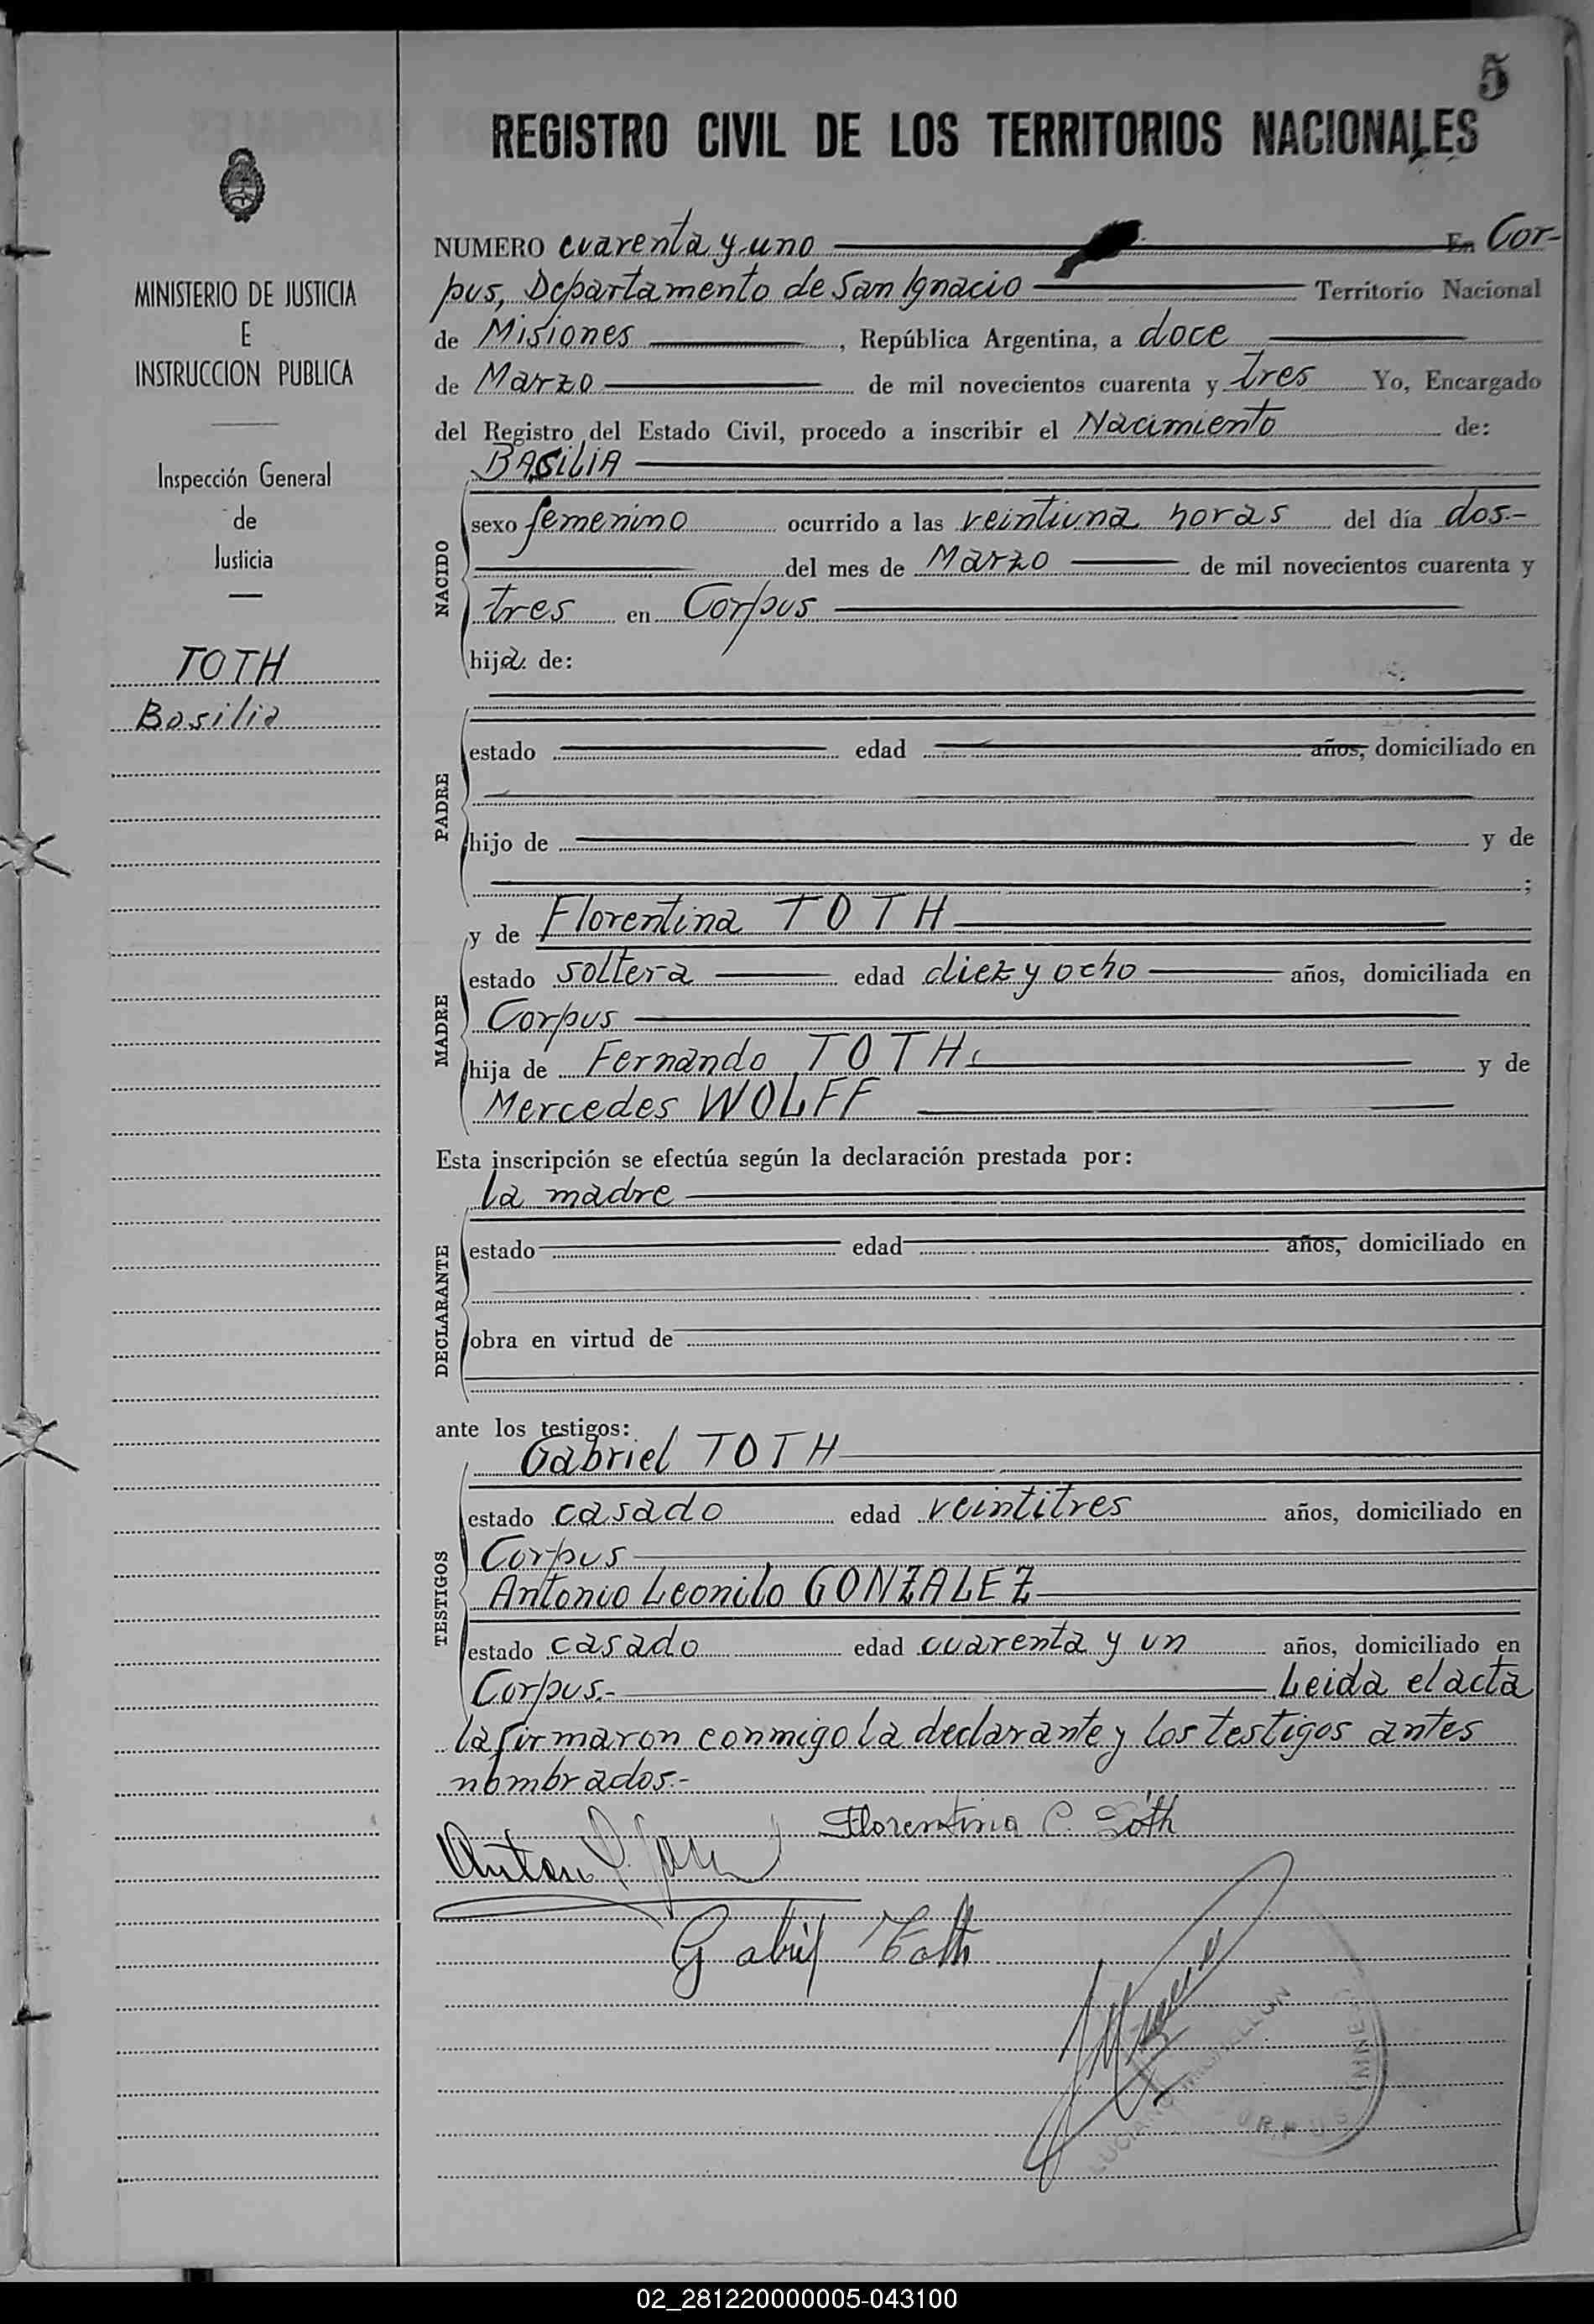 5
REGISTRO CIVIL DE LOS TERRITORIOS NACIONALES
MINISTERIO DE JUSTICIA
E
INSTRUCCION PUBLICA
Inspección General
de
Justicia
TOTH
Basilia
NUMERO cuarenta y uno En Cor-
pus, Departamento de San Ignacio Territorio Nacional
de Misiones , República Argentina, a doce
de Marzo de mil novecientos cuarenta y tres Yo, Encargado
del Registro del Estado Civil, procedo a inscribir el Nacimiento de:
BASILIA
NACIDO
sexo femenino ocurrido a las veintiuna horas del día dos.-
del mes de Marzo de mil novecientos cuarenta y
tres en Corpus
hija de:
PADRE
estado edad años, domiciliado en
hijo de y de
;
MADRE
y de Florentina TOTH
estado soltera edad diez y ocho años, domiciliada en
Corpus
hija de Fernando TOTH y de
Mercedes WOLFF
Esta inscripción se efectúa según la declaración prestada por:
la madre
DECLARANTE
estado edad años, domiciliado en
obra en virtud de
ante los testigos:
Gabriel TOTH
TESTIGOS
estado casado edad veintitres años, domiciliado en
Corpus
Antonio Leonilo GONZALEZ
estado casado edad cuarenta y un años, domiciliado en
Corpus.- Leida el acta
la firmaron conmigo la declarante y los testigos antes
nombrados.-
Florentina C. Tóth
Gabriel Toth
02_281220000005-043100